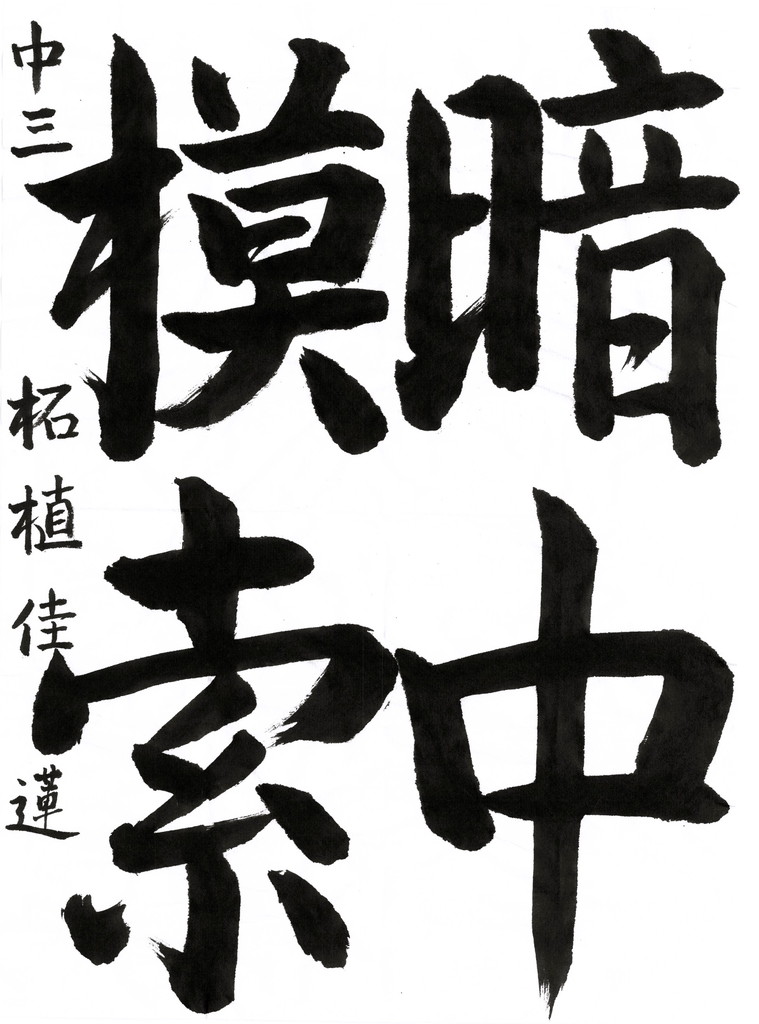 暗中
模索
中三 柘植佳蓮